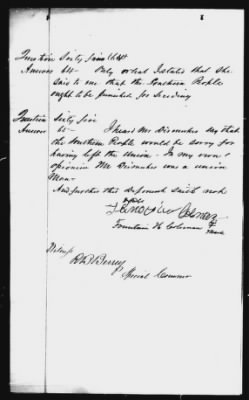 Question Sixty four
Answer 64 - Only what I stated that she
said to me that the Southern People
ought to be punished for Seceding
Question Sixty five
Answer 65 - I heard Mr Dismukes say that
the Southern People would be sorry for
having left the Union. In my own
opinion Mr Dismukes was a union
Man -
And further this deponent saith not
his
Fountain H Coleman
mark
Witness
R B Berrey
Special Commr